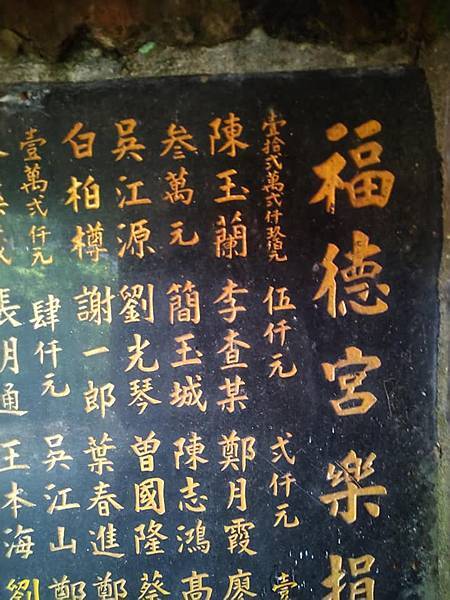 福德宮樂捐
壹拾弍萬弍仟玖佰元 伍仟元 弍仟元 壹
陳玉蘭 李查某 鄭月霞 廖
叁萬元 簡玉城 陳志鴻 高
吳江源 劉光琴 曾國隆 蔡
白柏樽 謝一郎 葉春進 鄭
壹萬弍仟元 肆仟元 吳江山 鄭
張月通 王本海 劉